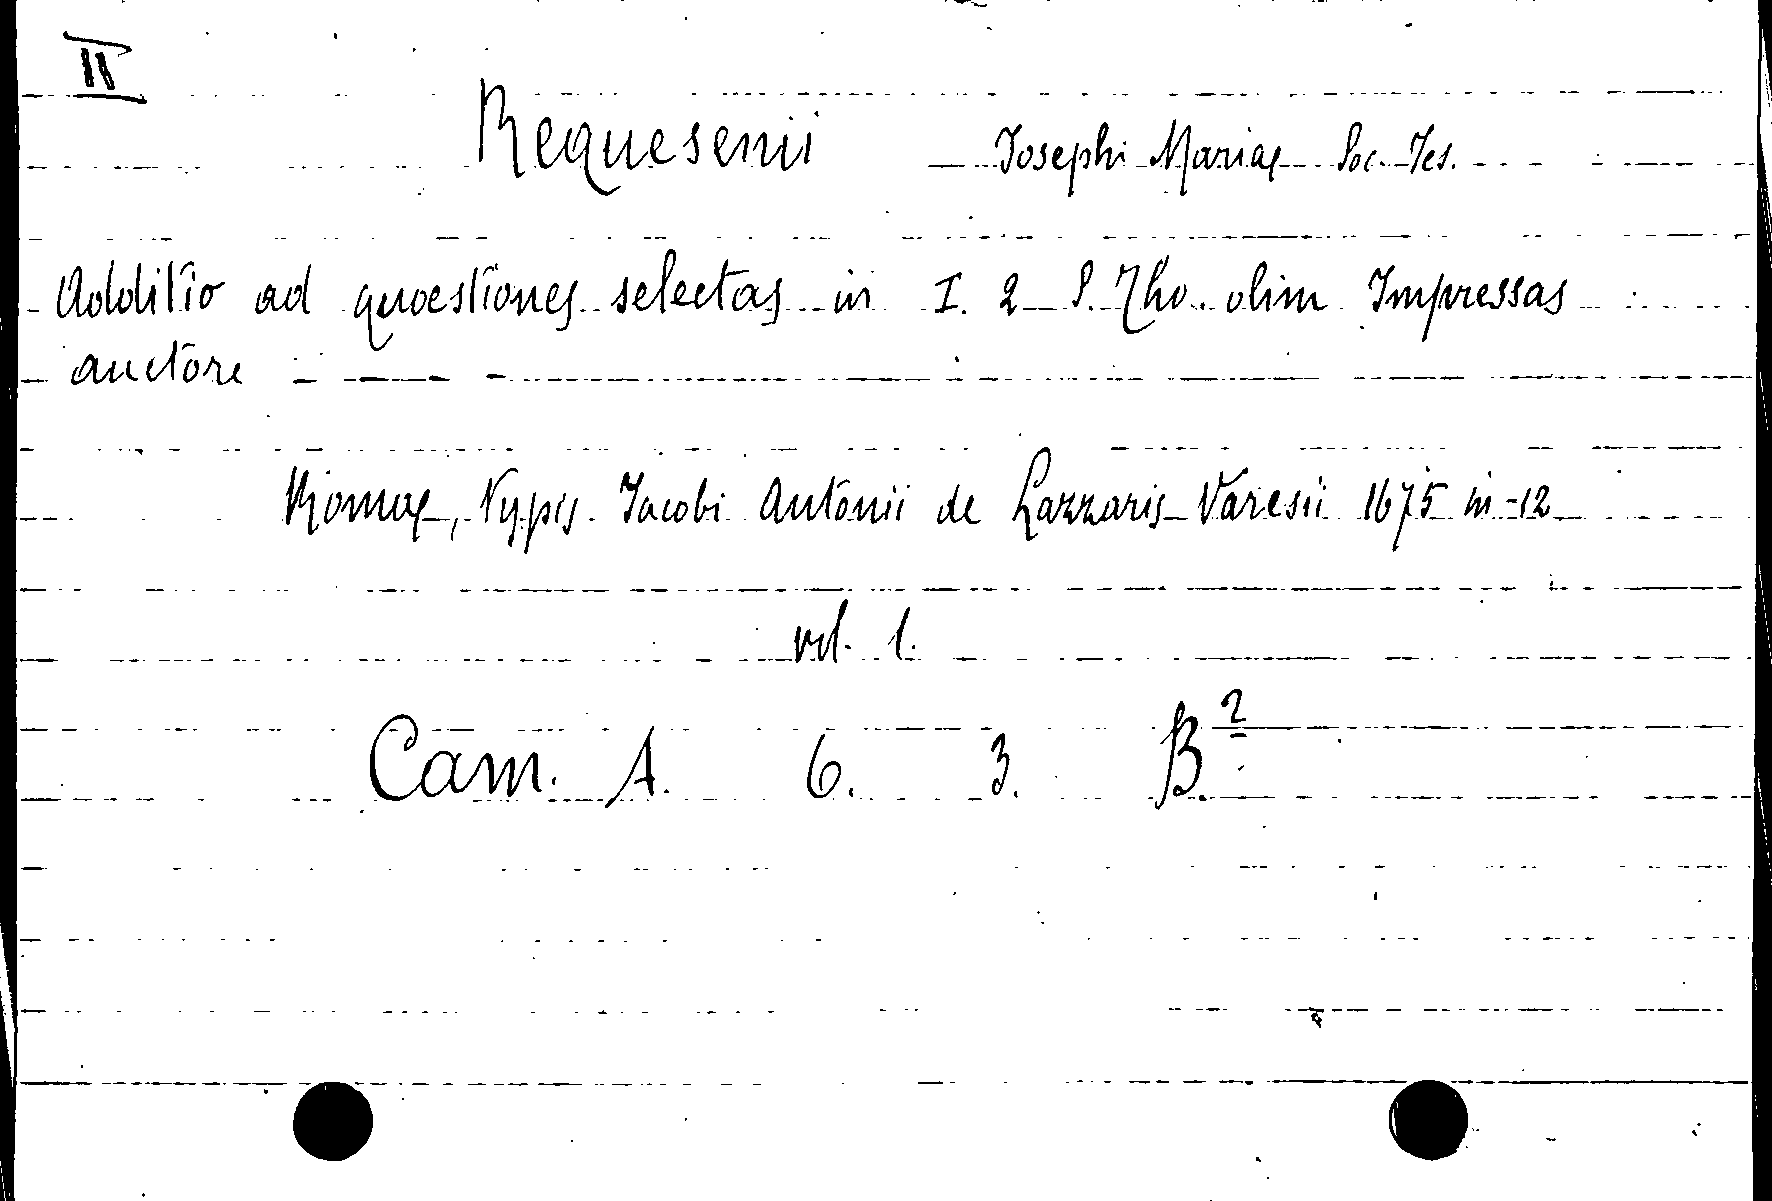 II
Requesenii Josephi Mariae Soc. Jes.
Additio ad quaestiones selectas in I. 2 S. Tho. olim Impressas
auctore - — -
Romae, typis Jacobi Antonii de Lazzaris Varesii 1675 in-12
vol. 1.
Cam. A. 6. 3. B.2